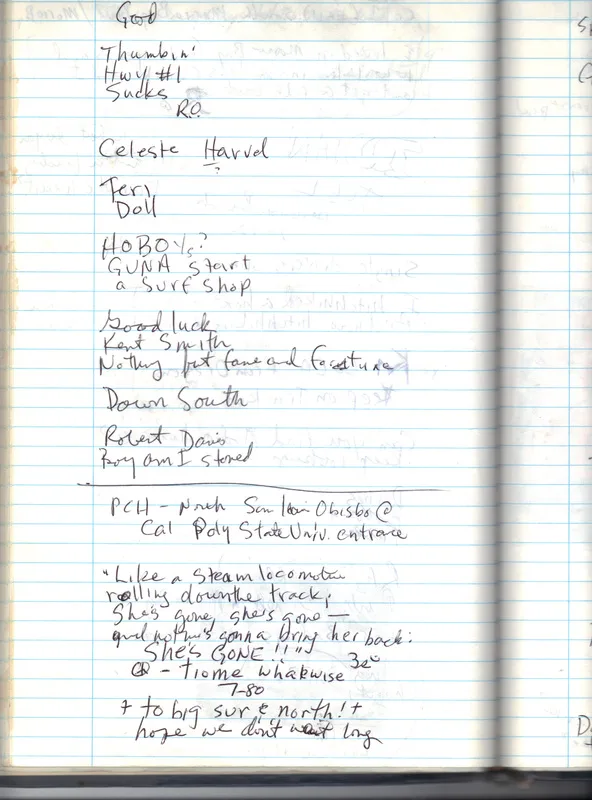 Good
Thumbin'
Hwy #1
Sucks
R.O.
Celeste Harvel
?
Teri
Doll
HOBOYs?
GUNA start
a Surf Shop
Good luck
Kent Smith
Nothing but fame and fortune
Down South
Robert Davis
Boy am I stoned
PCH - North San Luis Obisbo @
Cal Poly State Univ. entrace
"Like a steam locomotive
rolling down the track,
She's gone, she's gone —
and nothin's gonna bring her back:
She's GONE!!"
- time whakwise
7-80
+ to big sur & north! +
hope we don't wait long